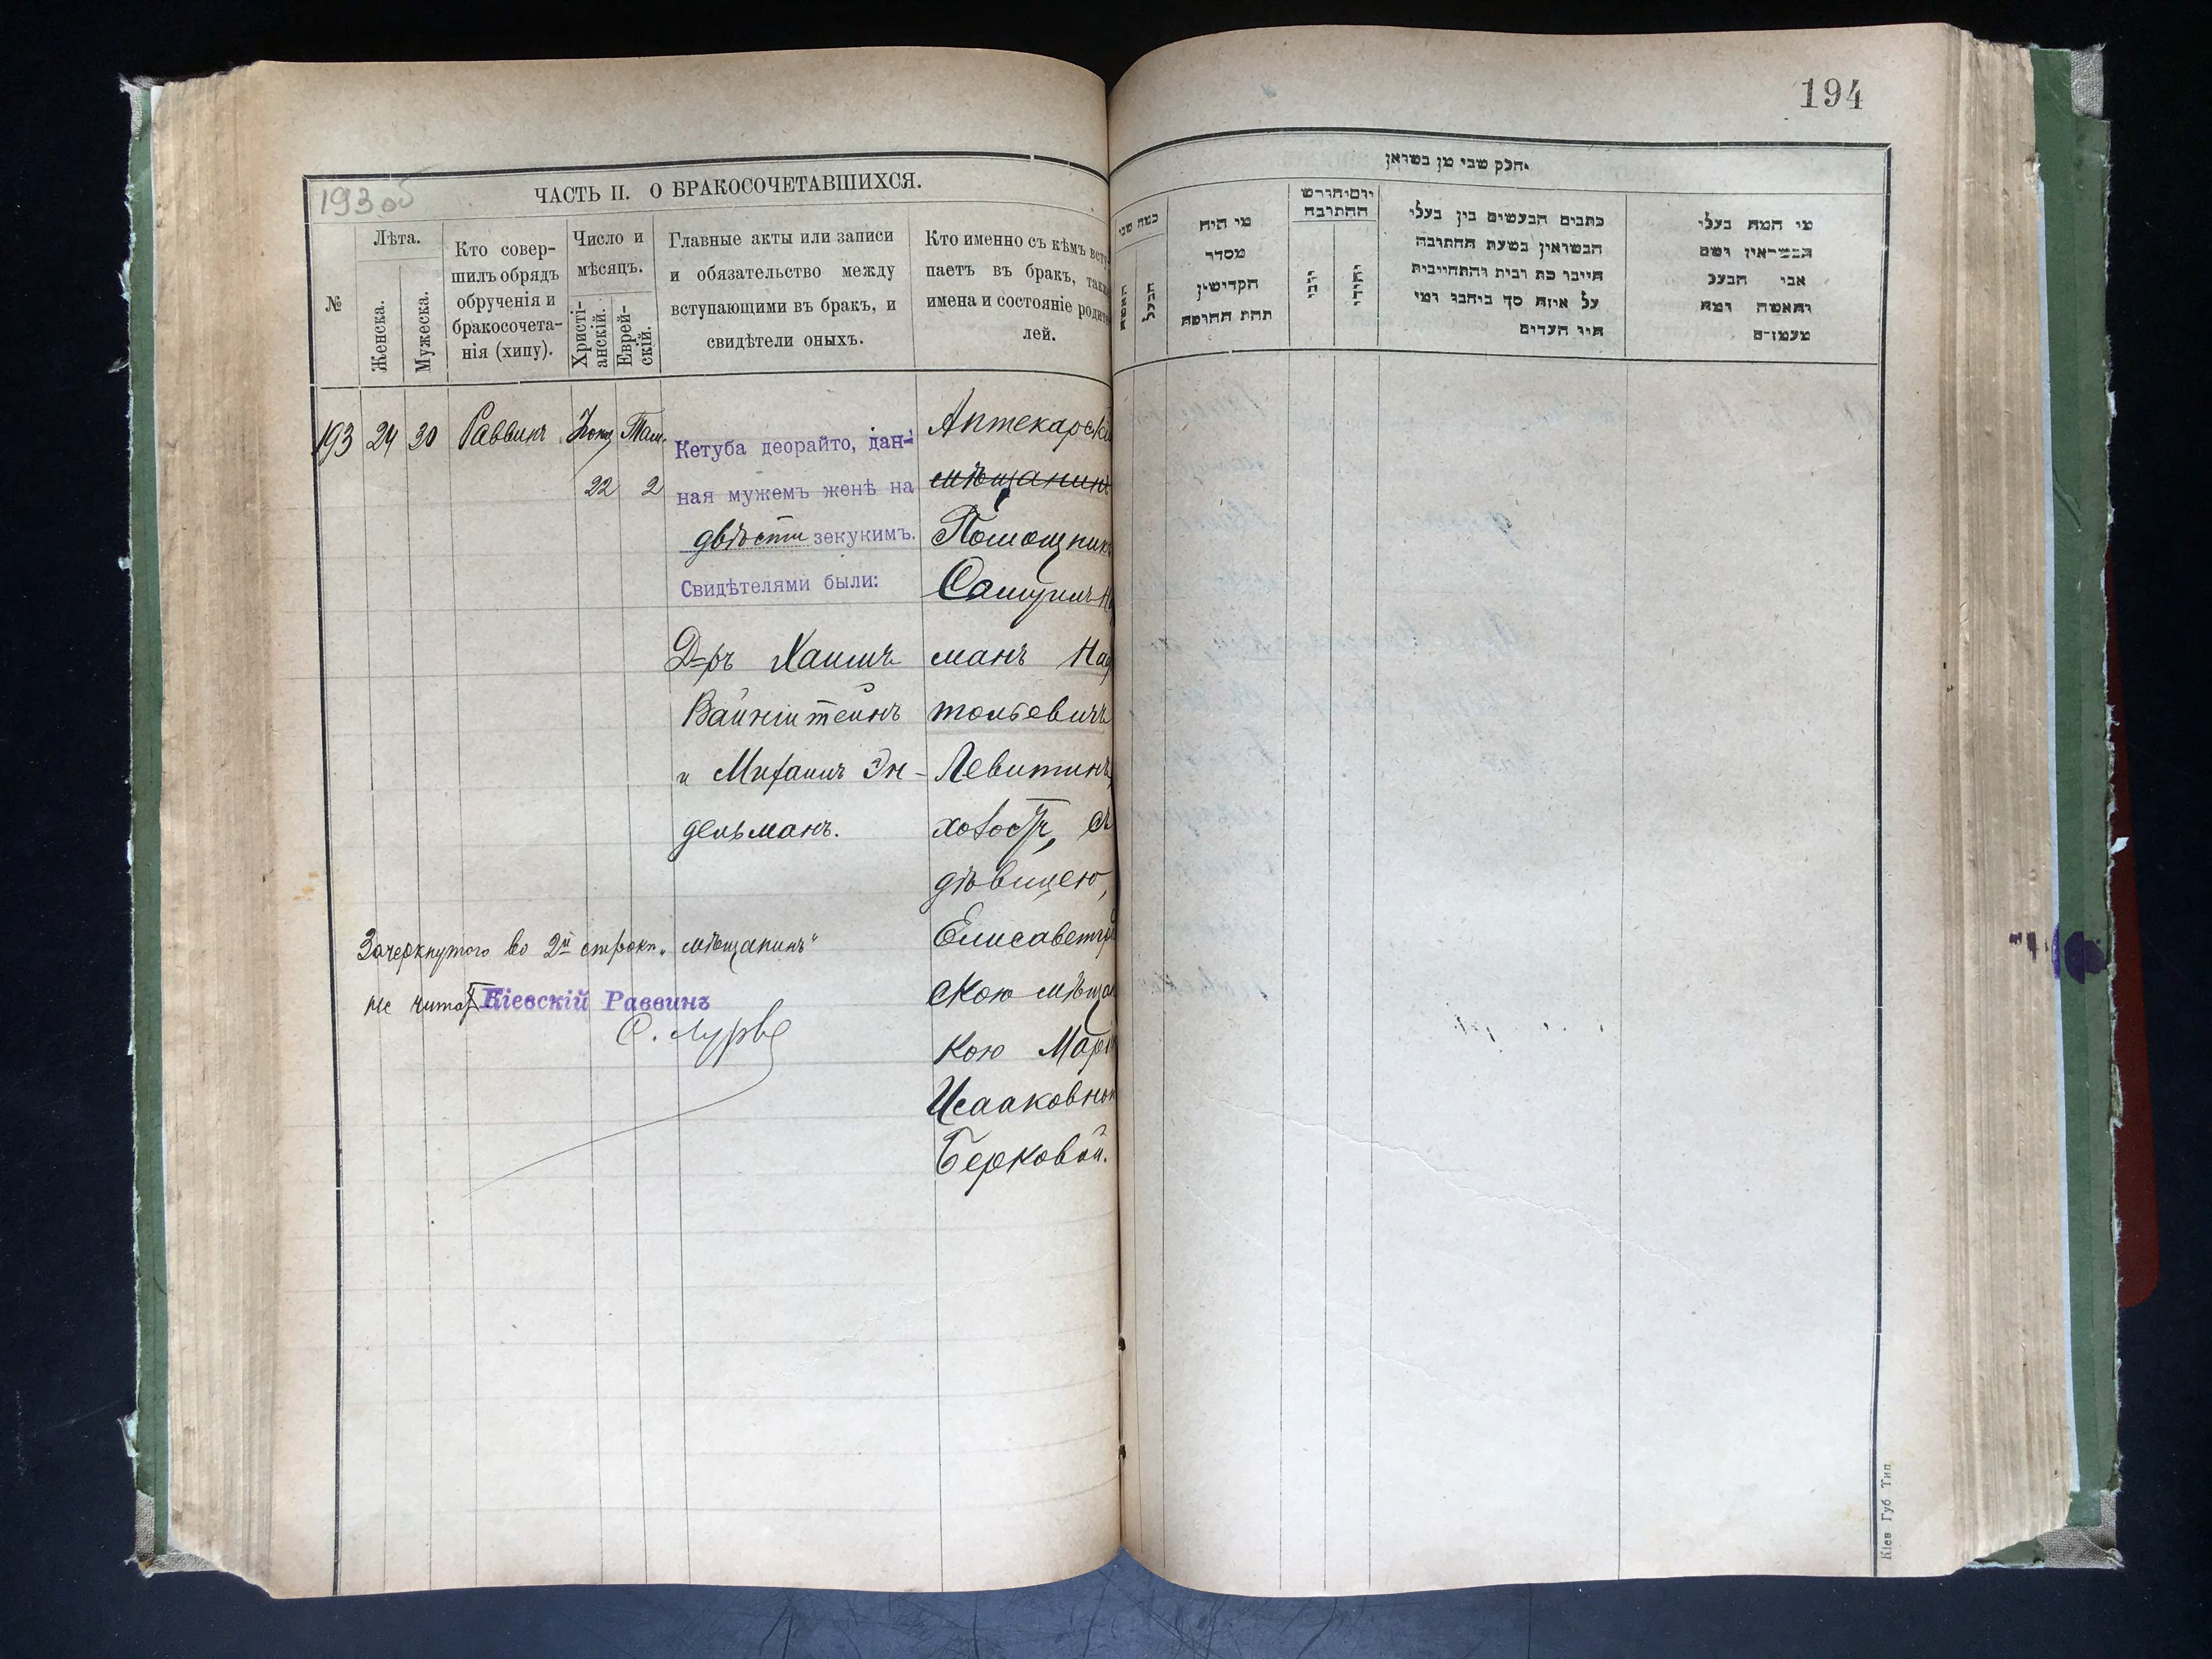 194
193 об
ЧАСТЬ II. О БРАКОСОЧЕТАВШИХСЯ.
№
Лѣта.
Женска.
Мужеска.
Кто совер-
шилъ обрядъ
обрученія и
бракосочета-
нія (хипу).
Число и
мѣсяцъ.
Христі-
анскій.
Еврей-
скій.
Главные акты или записи
и обязательство между
вступающими въ бракъ, и
свидѣтели оныхъ.
Кто именно съ кѣмъ всту
паетъ въ бракъ, такж
имена и состояніе родите
лей.
193 24 30 Раввинъ Іюня Там.
22 2
Кетуба деорайто, дан-
ная мужемъ женѣ на
двѣсти зекукимъ.
Свидѣтелями были:
Д-ръ Хаимъ
Вайнштейнъ
и Михаилъ Эн-
дельманъ.
Аптекарскі
мѣщанинъ
Помощникъ
Самуилъ-Н
манъ На
тольевичъ
Левитинъ,
холостъ, съ
дѣвицею,
Елисаветгр
скою мѣщан
кою Марі
Исааковно
Берковой.
Зачеркнутого во 2й строкѣ „мѣщанинъ"
не читать
Кіевскій Раввинъ
С. Лурье
חלק שני מן נשואין
כמה שני
האשה
הבעל
מי היה
מסדר
הקדישין
תחת החופה
יום וחודש
החתונה
נוצרי
יהודי
כתבים הנעשים בין בעלי
הנשואין בשעת החתונה
חייבו כת ובית והתחייבות
על איזה סך ביחבו ומי
היו העדים
מי המה בעלי
הנשואין ושם
אבי הבעל
והאשה ומה
מעמדם
Кіев Губ Тип